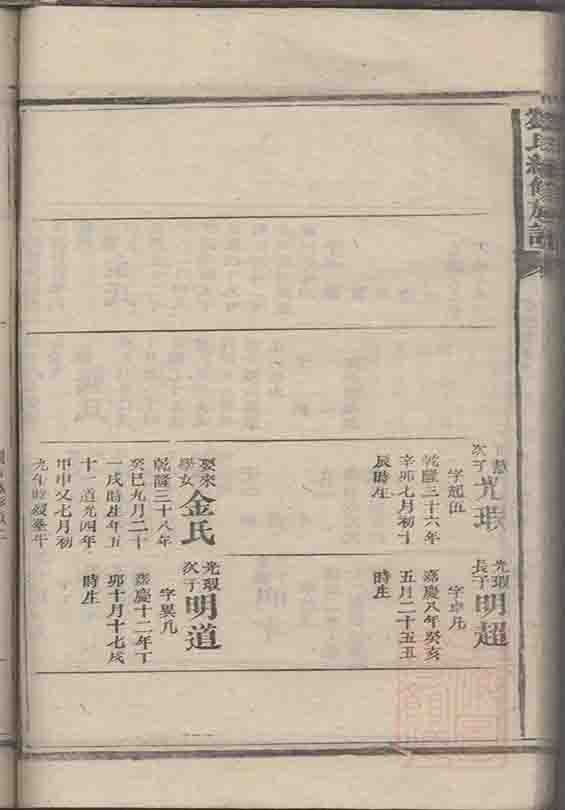 氏續修族譜
次子光瑕
字起伍
乾隆三十六年
辛卯七月初十
辰時生
娶來
學女金氏
乾隆三十八年
癸巳九月二十
一戌時生年五
十一道光四年
甲申又七月初
九午時歿葬牛
光瑕
長子明超
字卓凡
嘉慶八年癸亥
五月二十五丑
時生
光瑕
次子明道
字異凡
嘉慶十二年丁
卯十月十七戌
時生